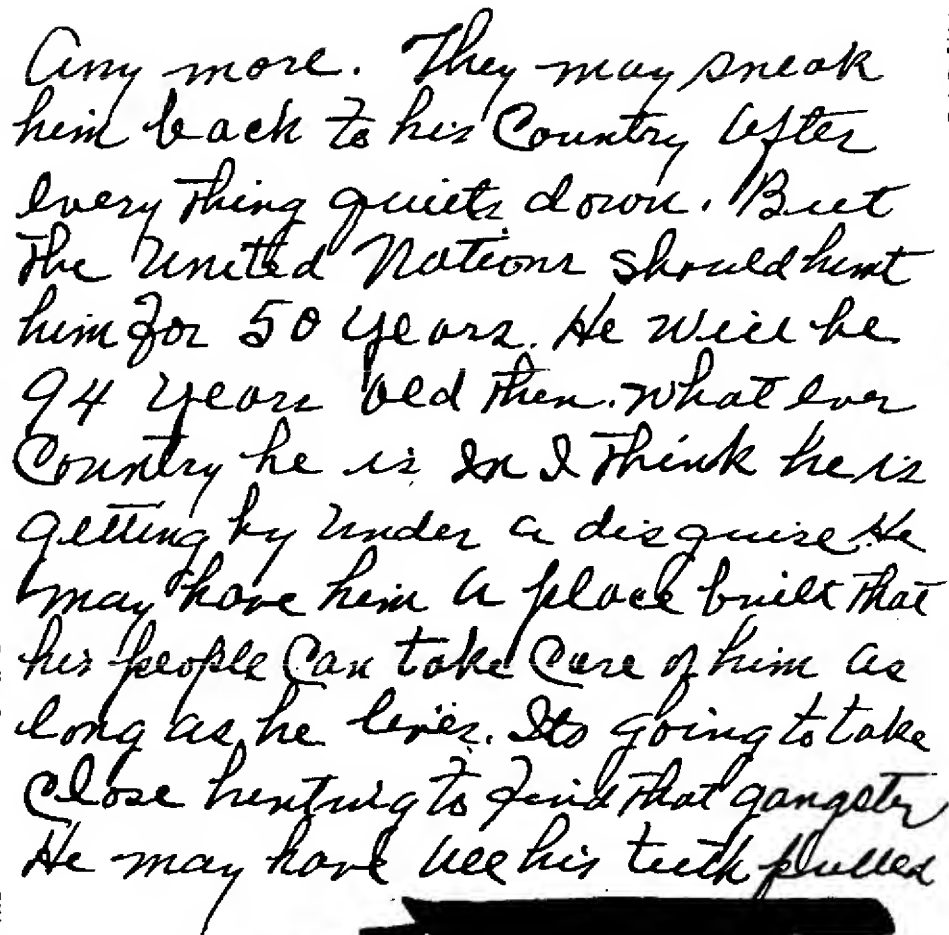 Any more. They may sneak
him back to his Country After
every thing quiets down. But
the United Nations should hunt
him for 50 years. He will be
94 years old then. what ever
Country he is In I think he is
getting by under a disguise He
may have him a place built that
his people Can take Care of him as
long as he lives. Its going to take
Close hunting to find that gangster
He may have all his teeth pulled